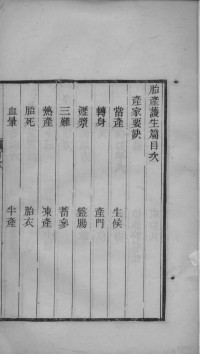 胎產護生篇目次
產家要訣
當產　生候
轉身　產門
瀝漿　盤腸
三難　蓄參
熱產　凍產
胎死　胎衣
血暈　半產